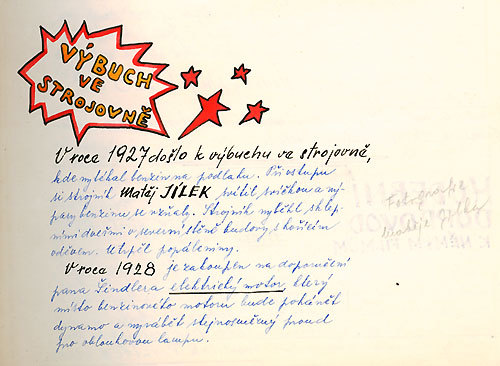 VÝBUCH
VE
STROJOVNĚ
V roce 1927 došlo k výbuchu ve strojovně,
kde vytékal benzin na podlahu. Při vstupu
si strojník Matěj JÍLEK svítil svíčkou a vý-
pary benzinu se vzňaly. Strojník vyběhl sklep-
ními dveřmi v severní stěně budovy s hořícím
oděvem. Utrpěl popáleniny.
V roce 1928 je zakoupen na doporučení
pana Šindlera elektrický motor, který
místo benzinového motoru bude pohánět
dynamo a vyrábět stejnosměrný proud
pro obloukovou lampu.
Fotografie
Matěje Jílka